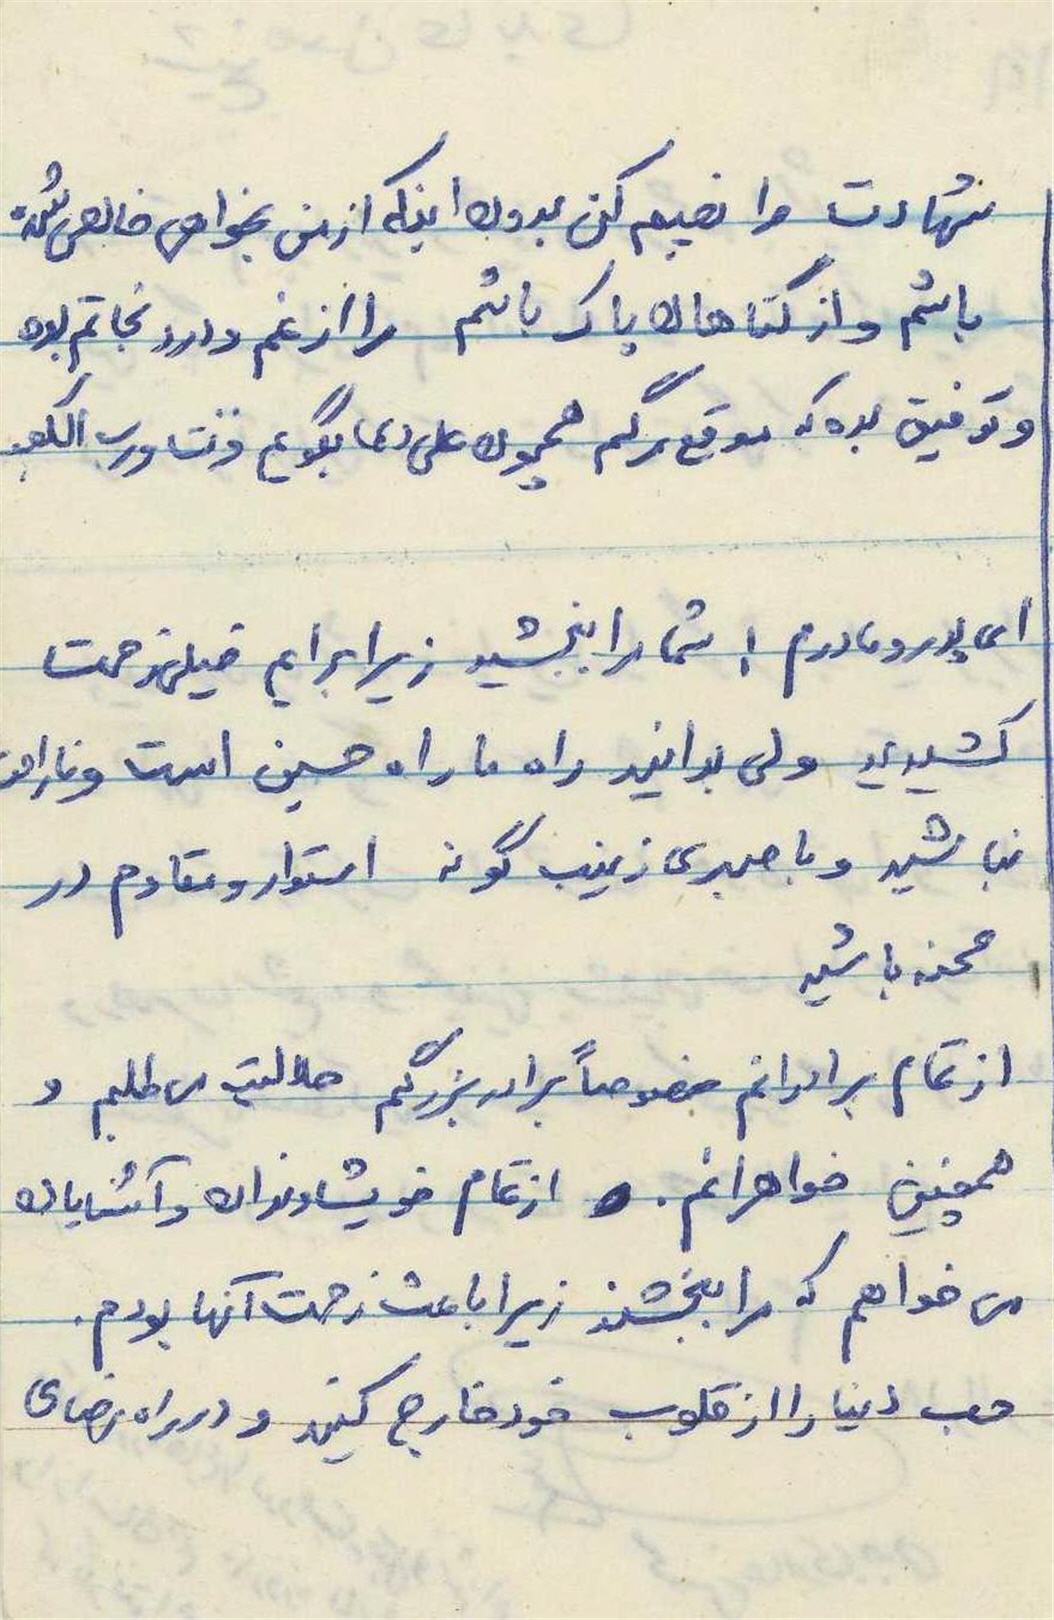 شهادت را نصیبم کن بدون اینکه از من بخواهی خالص شده
باشم و از گناهان پاک باشم مرا از غم و درد نجاتم بده
و توفیق بده که موقع مرگم همچون علی ... بگویم فزت و رب الکعبه
ای پدر و مادرم ! شما مرا ببخشید زیرا برایم خیلی زحمت
کشیدید ولی بدانید راه ما راه حسین است و ناراحت
نباشید و با صبری زینب گونه استوار و مقاوم در
صحنه باشید
از تمام برادرانم خصوصاً برادر بزرگم حلالیت می طلبم و
همچنین خواهرانم. از تمام خویشاوندان و آشنایان
می خواهم که مرا ببخشند زیرا باعث زحمت آنها بودم.
حب دنیا را از قلوب خود خارج کنید و در راه رضای